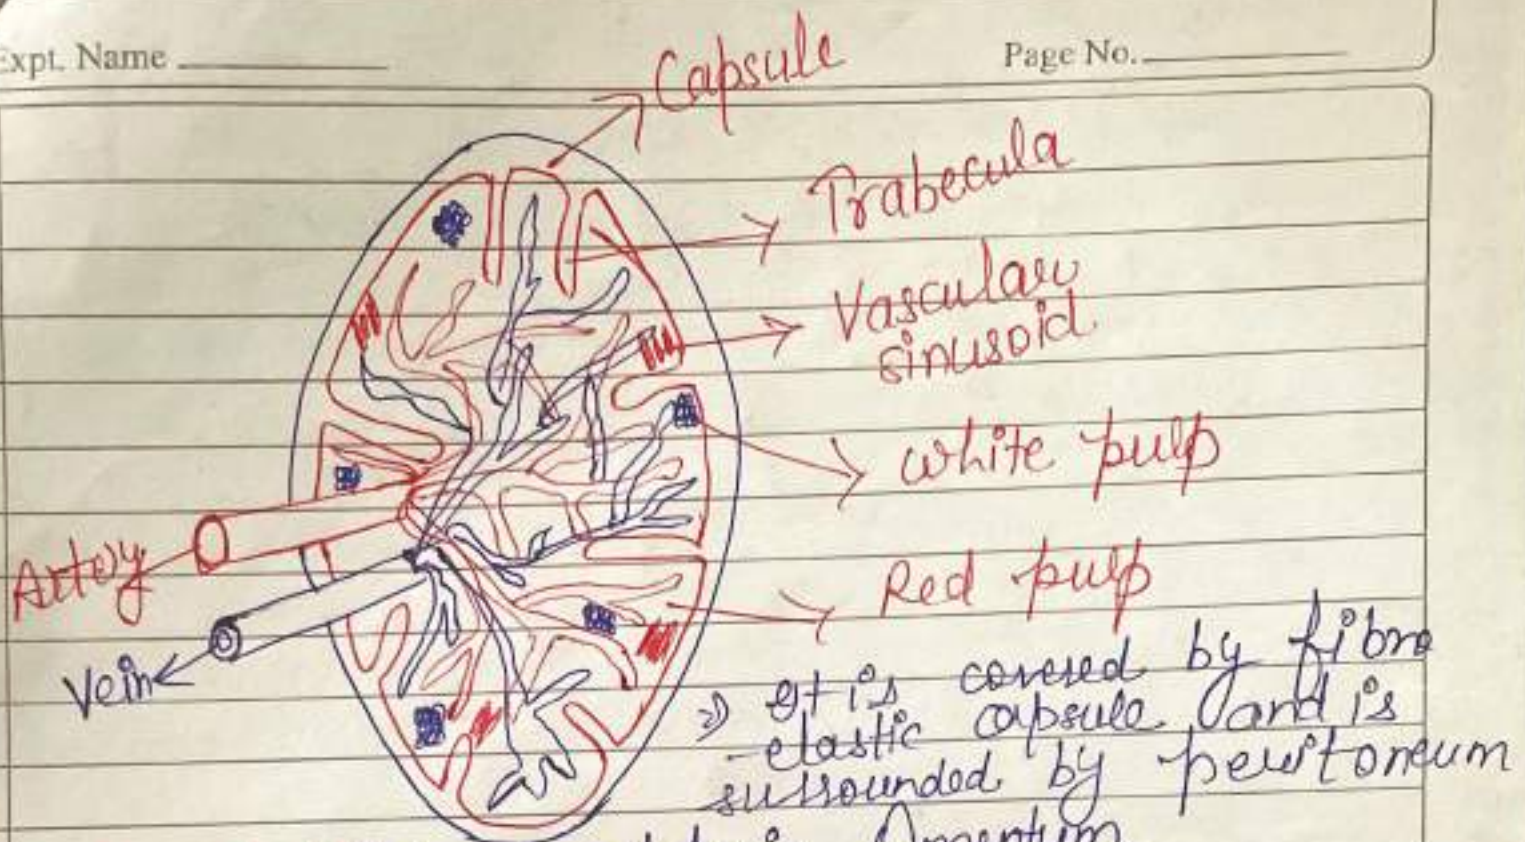 Expt. Name
Page No.
Capsule
Trabecula
Vascular
sinusoid
White pulp
Artery
Red pulp
Vein
⇒ It is covered by fibro
elastic capsule and is
surrounded by peritoneum
Omentum